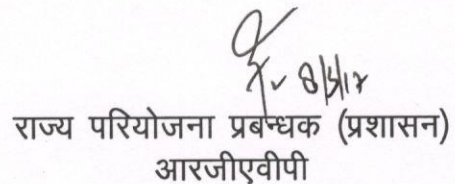 8/5/17
राज्य परियोजना प्रबन्धक (प्रशासन)
आरजीएवीपी